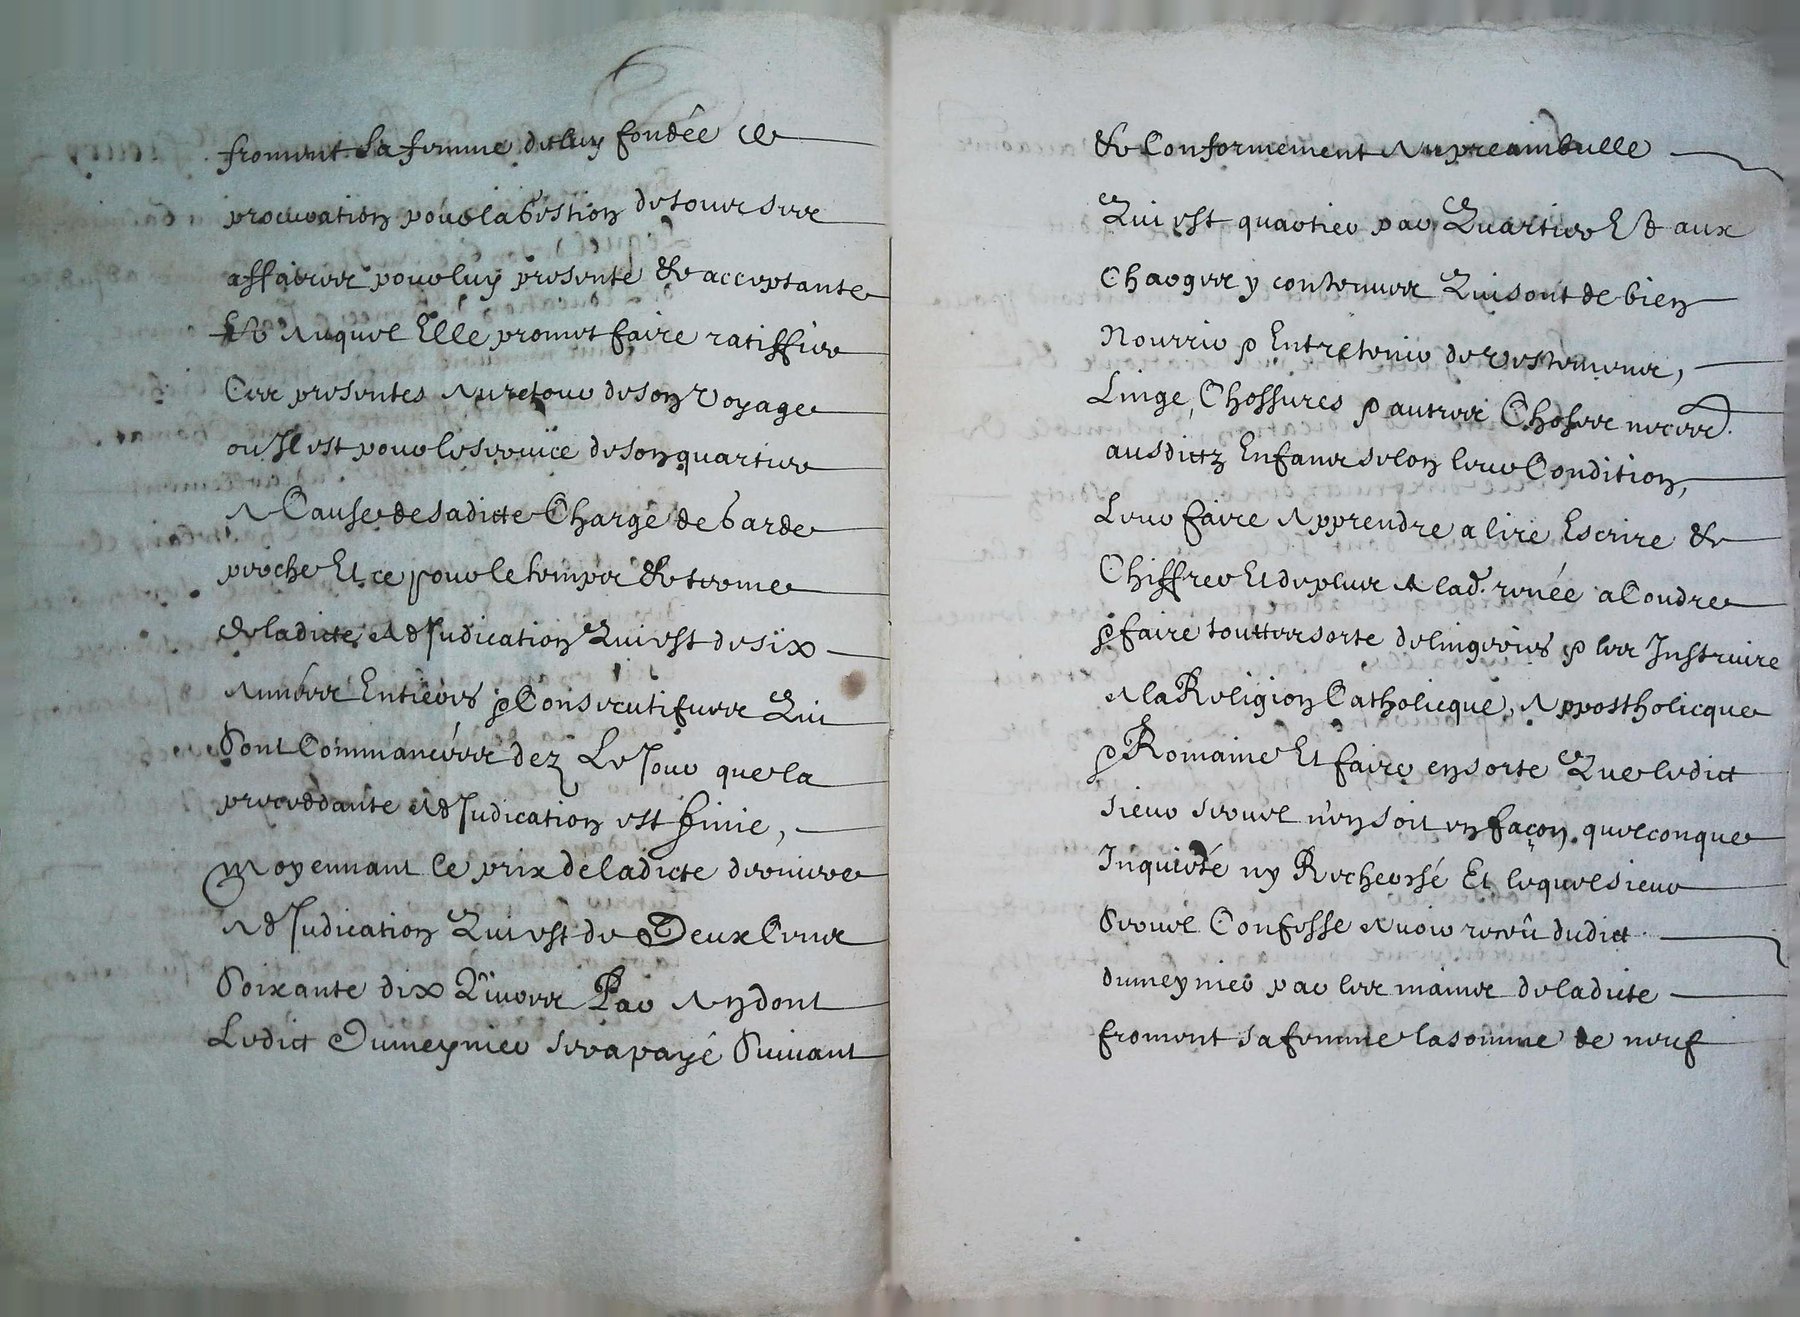 froment sa femme de luy fondée de
procuration pour la gestion de toutes ses
affaires pour luy presente et acceptante
Et auquel Elle promet faire ratiffier
Ces presentes au retour de son voyage
ou Il est pour le service de son quartier
A Cause de sadicte Charge de garde
proche Et ce pour le temps et terme
de ladicte adJudication Qui est de six
années Entieres et Consecutifves Qui
Sont Commancées dez Le Jour que la
preceddante adJudication est finie,
Moyennant le prix de ladicte derniere
adJudication Qui est de Deux Cens
Soixante dix Livres Par an dont
Ledict Dumeynier sera payé Suivant
et Conformement au preambulle
Qui est quartier par Quartier Et aux
Charges y contenues Qui sont de bien
Nourrir et Entretenir de vestemens,
Linge, Chossures et autres Choses neces.
ausdictz Enfans selon leur Condition,
Leur faire Apprendre a lire Escrire et
Chiffrer Et de plus A lad. renée a Coudre
et faire touttes sorte de lingeries et les Instruire
A la Religion Catholicque, Appostholicque
et Romaine Et faire en sorte Que ledict
sieur n'en soit en façon quelconque
Inquieté ny Recherché Et lequel sieur
Confesse avoir receû dudict
dumeynier par les mains de ladicte
froment sa femme la somme de neuf